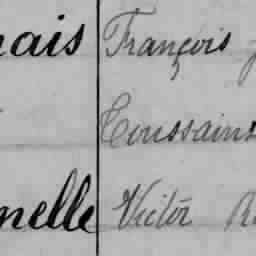 nais François
Toussaint
nelle Victor